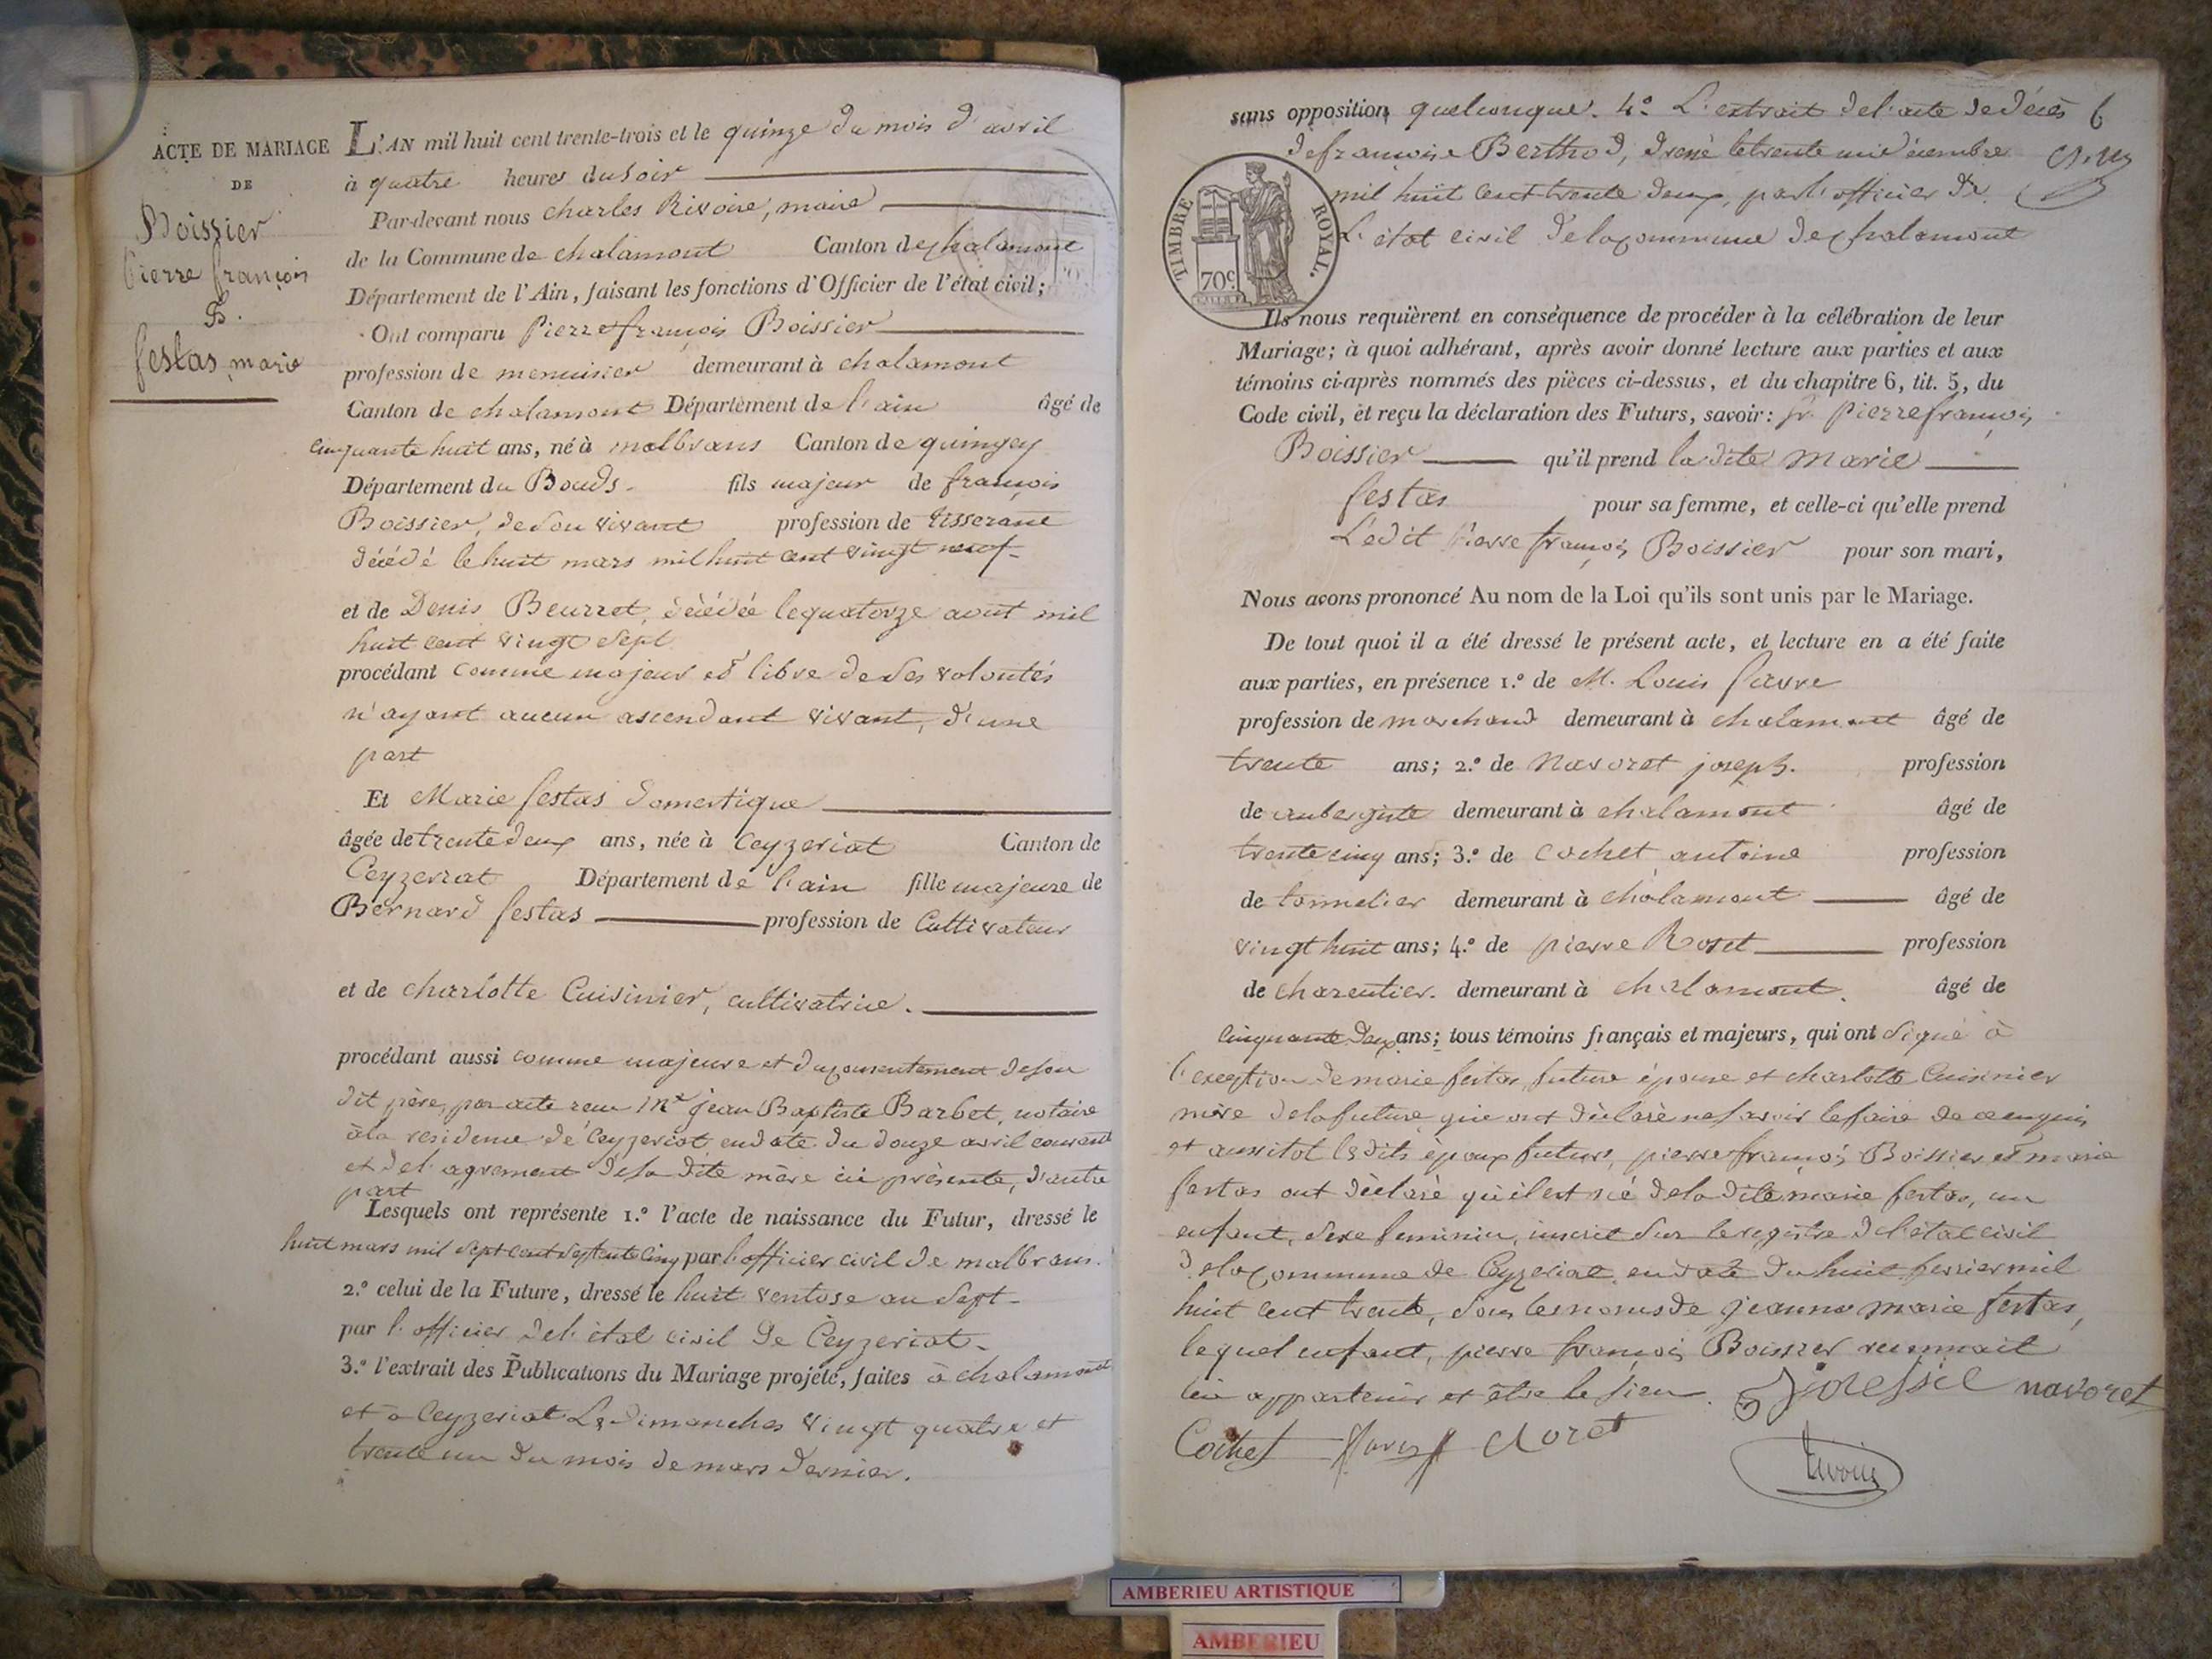 ACTE DE MARIAGE
DE
Boissier
Pierre françois
&.
festas marie
L'AN mil huit cent trente-trois et le quinze du mois d'avril
à quatre heures du soir
Par-devant nous charles Rivoire, maire
de la Commune de chalamont Canton de chalamont
Département de l'Ain, faisant les fonctions d'Officier de l'état civil;
Ont comparu Pierre françois Boissier
profession de menuisier demeurant à chalamont
Canton de chalamont Département de l'ain âgé de
cinquante huit ans, né à malbrans Canton de quingey
Département du Doubs. fils majeur de françois
Boissier, de son vivant profession de tisserane
décédé le huit mars mil huit cent vingt neuf
et de Denis Beurret, décédée le quatorze aout mil
huit cent vingt sept
procédant comme majeur et libre de ses volontés
n'ayant aucun ascendant vivant, d'une
part
Et Marie festas domestique
âgée de trente deux ans, née à Ceyzeriat Canton de
Ceyzeriat Département de l'ain fille majeure de
Bernard festas profession de Cultivateur
et de charlotte Cuisinier, cultivatrice.
procédant aussi comme majeure et du consentement de son
dit père, par acte reçu Me jean Baptiste Barbet, notaire
à la residence de Ceyzeriat en date du douze avril courant
et de l'agrement de sa dite mère ici présente, d'autre
part
Lesquels ont représenté 1.º l'acte de naissance du Futur, dressé le
huit mars mil sept cent septente cinq par l'officier civil de malbrans.
2.º celui de la Future, dressé le huit ventose an sept
par l'officier de l'état civil de Ceyzeriat
3.º l'extrait des Publications du Mariage projeté, faites à chalamont
et à Ceyzeriat Les dimanches vingt quatre et
trente un du mois de mars dernier.
sans opposition quelconque. 4º L'extrait de l'acte de décès 6
de francoise Berthod, dressé le trente un décembre
mil huit cent trente deux, par l'officier de
L'état civil de la commune de chalamont
TIMBRE ROYAL.
70c
Ils nous requièrent en conséquence de procéder à la célébration de leur
Mariage; à quoi adhérant, après avoir donné lecture aux parties et aux
témoins ci-après nommés des pièces ci-dessus, et du chapitre 6, tit. 5, du
Code civil, et reçu la déclaration des Futurs, savoir: Sr. Pierre françois
Boissier qu'il prend la dite Marie
festas pour sa femme, et celle-ci qu'elle prend
Ledit Pierre françois Boissier pour son mari,
Nous avons prononcé Au nom de la Loi qu'ils sont unis par le Mariage.
De tout quoi il a été dressé le présent acte, et lecture en a été faite
aux parties, en présence 1.º de M. Louis favre
profession de marchand demeurant à chalamont âgé de
trente ans; 2.º de Navoret joseph. profession
de aubergiste demeurant à chalamont âgé de
trente cinq ans; 3.º de Cochet antoine profession
de tonnelier demeurant à chalamont âgé de
vingt huit ans; 4.º de pierre Roset profession
de charentier. demeurant à chalamont. âgé de
Cinquante deux ans; tous témoins français et majeurs, qui ont signé à
l'exception de marie festas, future épouse et charlotte Cuisinier
mère de la future, qui ont déclaré ne savoir le faire de ce enquis
et aussitot lesdits époux futurs, pierre françois Boissier et marie
festas ont déclaré qu'il est né de la dite marie festas, un
enfant, sexe feminin, inscrit sur le registre de l'état civil
de la Commune de Ceyzeriat, en date du huit fevrier mil
huit cent trente, sous les noms de jeanne marie festas,
lequel enfant, pierre françois Boissier reconnait
lui appartenir et être le sien. navoret
Cochet
Rivoire
AMBERIEU ARTISTIQUE
AMBERIEU